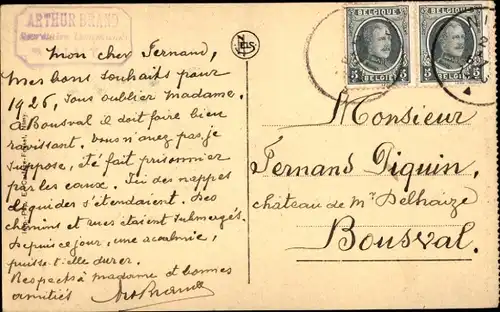 ARTHUR BRAND
Secrétaire Communal
Mon cher Fernand,
Mes bons souhaits pour
1926, sous oublier Madame.
A Bousval il doit faire bien
ravissant. Vous n'avez pas, je
suppose, été fait prisonnier
par les eaux. Ici des nappes
liquides s'étendaient. Des
chemins et rues étaient submergés.
Depuis ce jour, une accalmie,
puisse-t-elle durer.
Respects à Madame et bonnes
amitiés
ArtBrand
NELS
BELGIQUE
5 BELGIË 5
BELGIQUE
5 BELGIË 5
Monsieur
Fernand Piquin,
château de Mr Delhaize
Bousval.